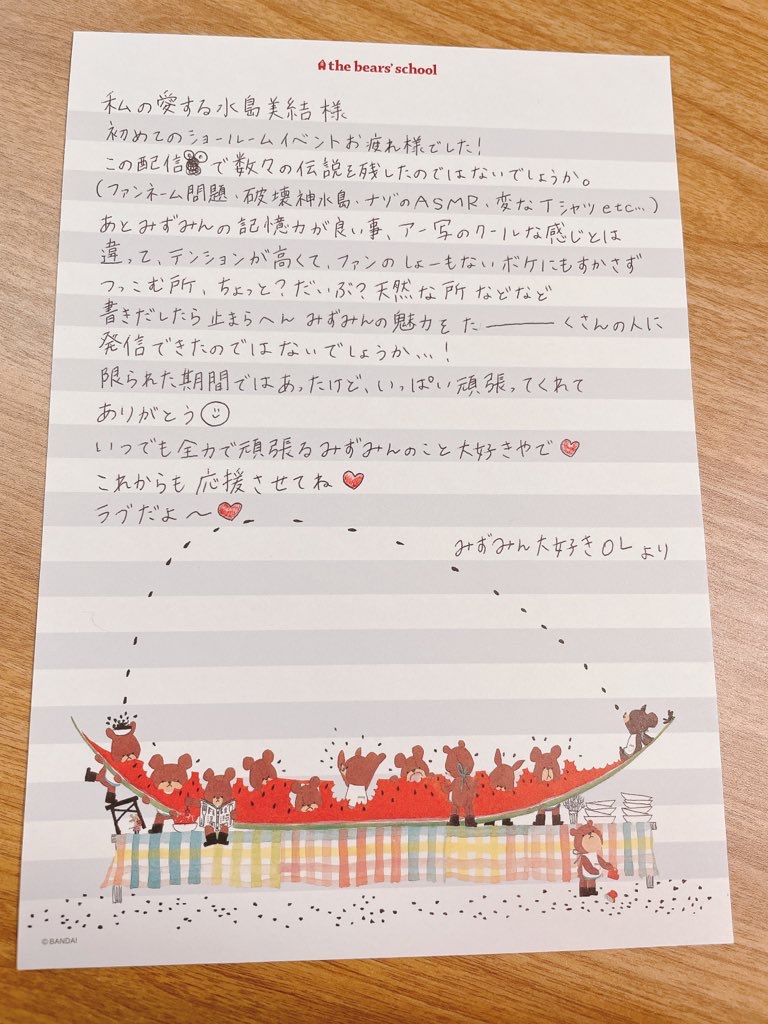 the bears' school
私の愛する水島美結様
初めてのショールームイベントお疲れ様でした!
この配信で数々の伝説を残したのではないでしょうか。
(ファンネーム問題・破壊神水島・ナゾのASMR、変なTシャツetc...)
あとみずみんの記憶力が良い事、アー写のクールな感じとは
違って、テンションが高くて、ファンのしょーもないボケにもすかさず
つっこむ所、ちょっと?だいぶ?天然な所などなど
書きだしたら止まらへんみずみんの魅力をた――――くさんの人に
発信できたのではないでしょうか...!
限られた期間ではあったけど、いっぱい頑張ってくれて
ありがとう☺
いつでも全力で頑張るみずみんのこと大好きやで♥
これからも応援させてね♥
ラブだよ〜♥
みずみん大好きOLより
©BANDAI